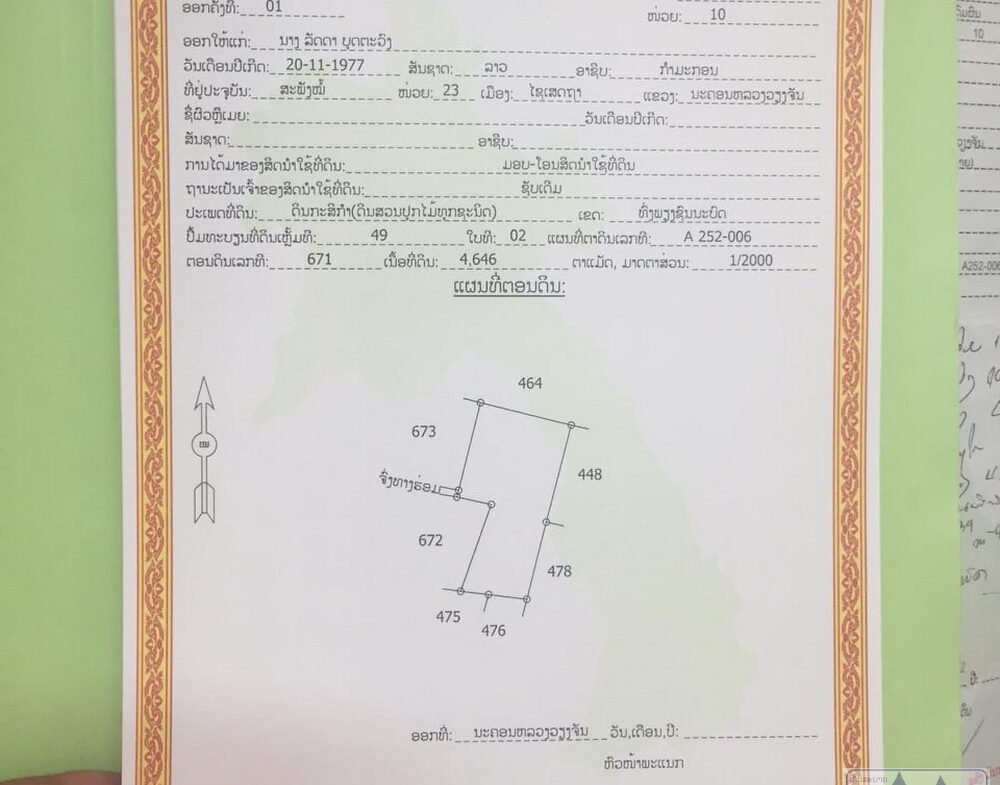 ອອກຄັ້ງທີ: 01 ໜ່ວຍ: 10
ອອກໃຫ້ແກ່: ນາງ ລັດດາ ບຸດຕະວົງ
ວັນເດືອນປີເກີດ: 20-11-1977 ສັນຊາດ: ລາວ ອາຊີບ: ກຳມະກອນ
ທີ່ຢູ່ປະຈຸບັນ: ສະພັງໝໍ້ ໜ່ວຍ: 23 ເມືອງ: ໄຊເສດຖາ ແຂວງ: ນະຄອນຫລວງວຽງຈັນ
ຊື່ຜົວຫຼືເມຍ: ວັນເດືອນປີເກີດ:
ສັນຊາດ: ອາຊີບ:
ການໄດ້ມາຂອງສິດນຳໃຊ້ທີ່ດິນ: ມອບ-ໂອນສິດນຳໃຊ້ທີ່ດິນ
ຖານະເປັນເຈົ້າຂອງສິດນຳໃຊ້ທີ່ດິນ: ຊັບເດີມ
ປະເພດທີ່ດິນ: ດິນກະສິກຳ(ດິນສວນປູກໄມ້ທຸກຊະນິດ) ເຂດ: ທົ່ງພຽງຊົນນະບົດ
ປຶ້ມທະບຽນທີ່ດິນເຫຼັ້ມທີ: 49 ໃບທີ: 02 ແຜນທີ່ຕາດິນເລກທີ: A 252-006
ຕອນດິນເລກທີ: 671 ເນື້ອທີ່ດິນ: 4,646 ຕາແມັດ, ມາດຕາສ່ວນ: 1/2000
ແຜນທີ່ຕອນດິນ:
464
673
448
ຈົ່ງທາງຮ່ອມ
672
478
475
476
ອອກທີ່: ນະຄອນຫລວງວຽງຈັນ ວັນ,ເດືອນ,ປີ:
ຫົວໜ້າພະແນກ
10
A252-006